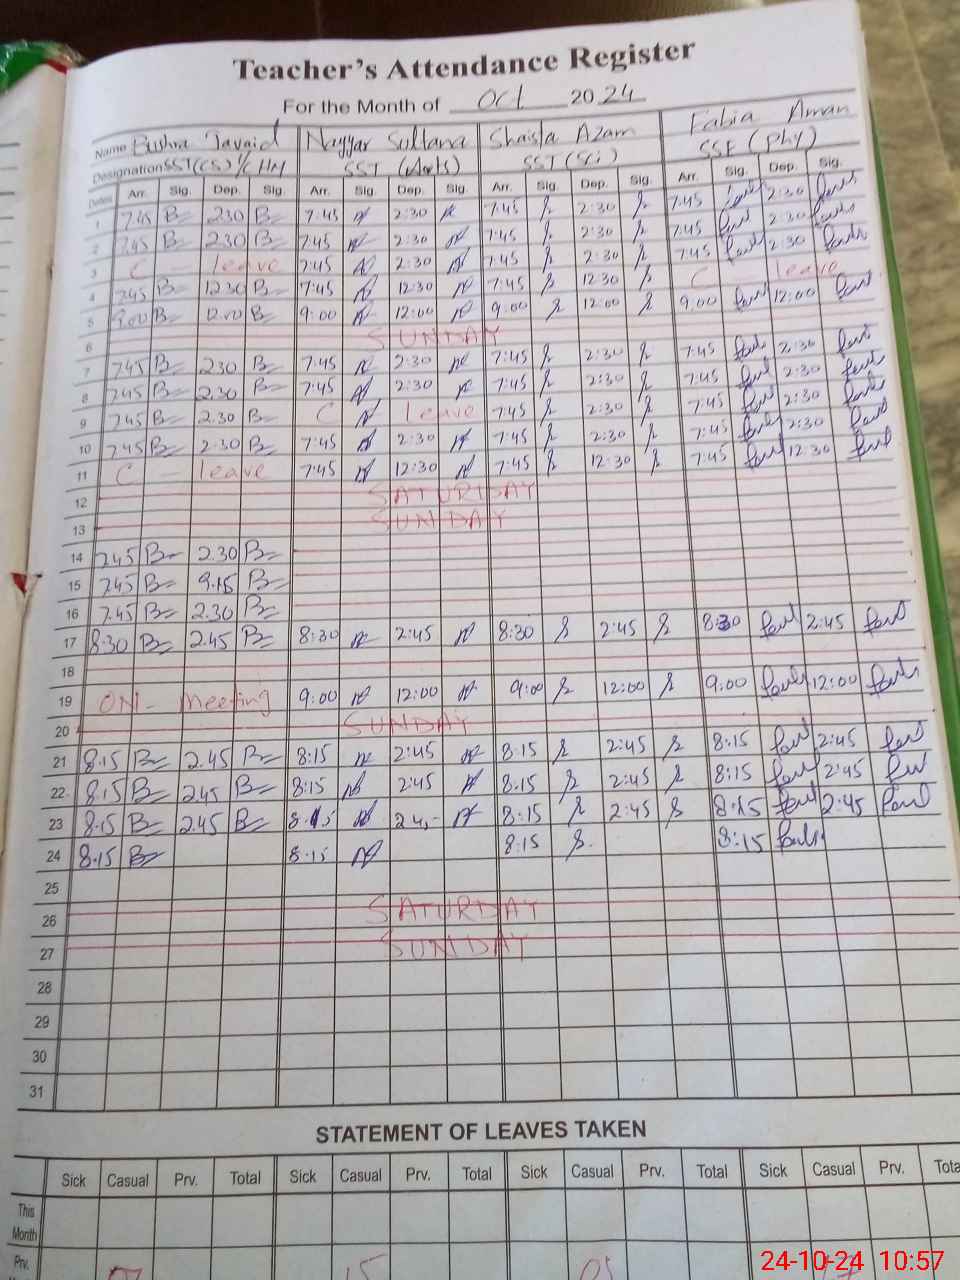 Teacher's Attendance Register
For the Month of Oct 2024
Name Bushra Javaid Nayyar Sultana Shaista Azam Fabia Aman
Designation SST(CS) I/C HM SST (Arts) SST (Sci) SSE (Phy)
Dates Arr. Sig. Dep. Sig. Arr. Sig. Dep. Sig. Arr. Sig. Dep. Sig. Arr. Sig. Dep. Sig.
1 7.45 B 2.30 B 7:45 2:30 7:45 2:30 7:45 2:30
2 7.45 B 2.30 B 7:45 2:30 7:45 2:30 7:45 2:30
3 C - leave 7:45 2:30 7:45 2:30 7:45 2:30
4 7.45 B 12.30 B 7:45 12:30 7:45 12:30 C leave
5 9.00 B 12.00 B 9:00 12:00 9:00 12:00 9:00 12:00
6 SUNDAY
7 7.45 B 2.30 B 7:45 2:30 7:45 2:30 7:45 2:30
8 7.45 B 2.30 B 7:45 2:30 7:45 2:30 7:45 2:30
9 7.45 B 2.30 B C leave 7:45 2:30 7:45 2:30
10 7.45 B 2.30 B 7:45 2:30 7:45 2:30 7:45 2:30
11 C - leave 7:45 12:30 7:45 12:30 7:45 12:30
12 SATURDAY
13 SUNDAY
14 7.45 B 2.30 B
15 7.45 B 9.15 B
16 7.45 B 2.30 B
17 8.30 B 2.45 B 8:30 2:45 8:30 2:45 8:30 2:45
18
19 ON - Meeting 9:00 12:00 9:00 12:00 9:00 12:00
20 SUNDAY
21 8.15 B 2.45 B 8:15 2:45 8:15 2:45 8:15 2:45
22 8.15 B 2.45 B 8:15 2:45 8:15 2:45 8:15 2:45
23 8.15 B 2.45 B 8:15 8:15 2:45 8:15 2:45
24 8.15 B 8:15 8:15 8:15
25
26 SATURDAY
27 SUNDAY
28
29
30
31
STATEMENT OF LEAVES TAKEN
Sick Casual Prv. Total Sick Casual Prv. Total Sick Casual Prv. Total Sick Casual Prv. Tota
This Month
Prv.
24-10-24 10:57